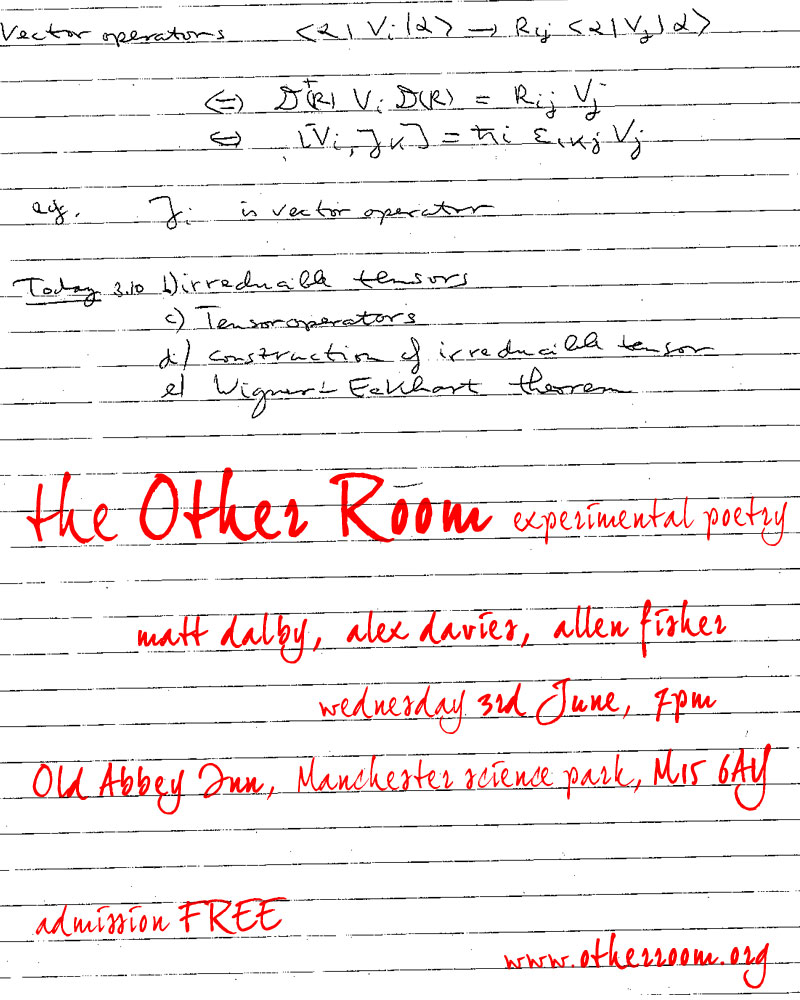 Vector operators <α|Vi|α> → Rij <α|Vj|α>
⇔ D†(R) Vi D(R) = Rij Vj
⇔ [Vi, Jk] = ħi εikj Vj
eg. Ji is vector operator
Today 3.10 b) irreducible tensors
c) Tensor operators
d) construction of irreducible tensor
e) Wigner-Eckhart theorem
the Other Room experimental poetry
matt dalby, alex davies, allen fisher
wednesday 3rd June, 7pm
Old Abbey Inn, Manchester science park, M15 6AY
admission FREE
www.otherroom.org